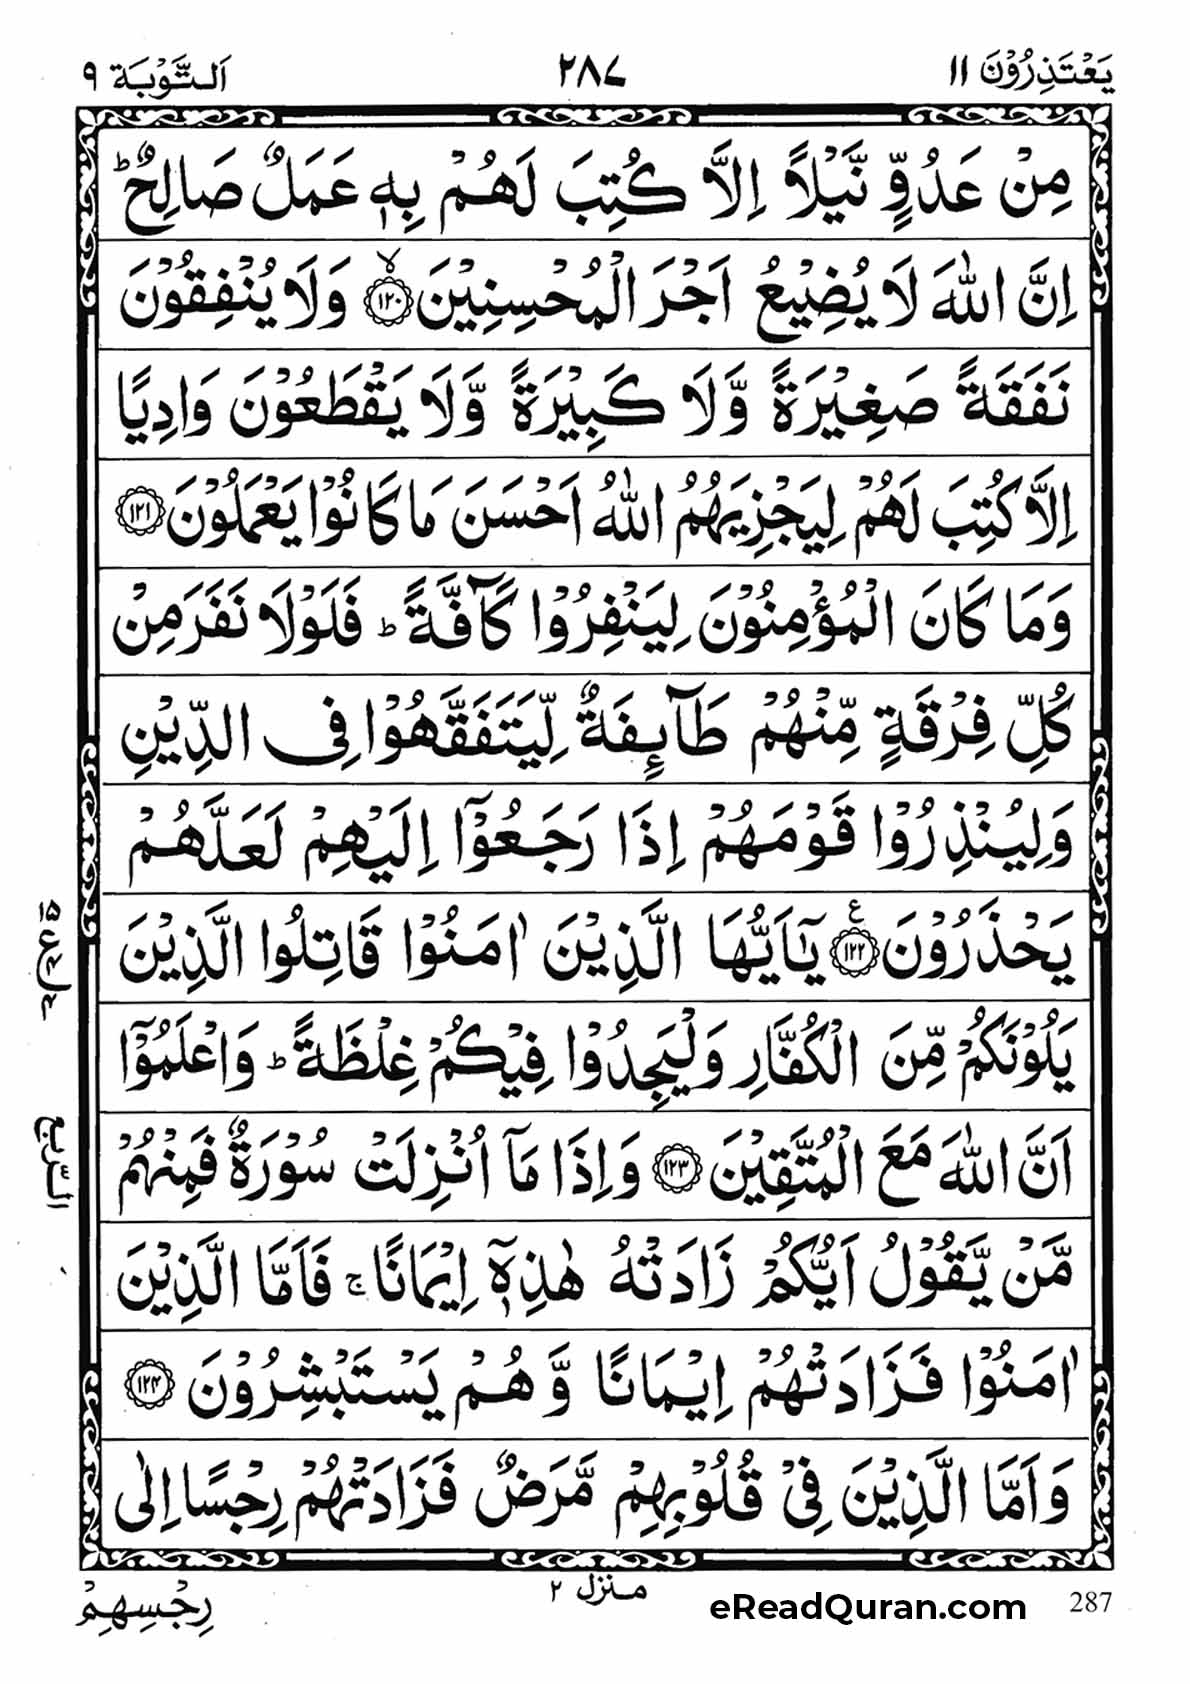 يَعْتَذِرُوْنَ ١١ ٢٨٧ اَلتَّوْبَة ٩
مِنْ عَدُوٍّ نَّيْلًا اِلَّا كُتِبَ لَهُمْ بِهٖ عَمَلٌ صَالِحٌ ؕ
اِنَّ اللّٰهَ لَا يُضِيْعُ اَجْرَ الْمُحْسِنِيْنَ ﴿١٢٠﴾ۙ وَلَا يُنْفِقُوْنَ
نَفَقَةً صَغِيْرَةً وَّلَا كَبِيْرَةً وَّلَا يَقْطَعُوْنَ وَادِيًا
اِلَّا كُتِبَ لَهُمْ لِيَجْزِيَهُمُ اللّٰهُ اَحْسَنَ مَا كَانُوْا يَعْمَلُوْنَ ﴿١٢١﴾
وَمَا كَانَ الْمُؤْمِنُوْنَ لِيَنْفِرُوْا كَآفَّةً ؕ فَلَوْلَا نَفَرَ مِنْ
كُلِّ فِرْقَةٍ مِّنْهُمْ طَآىِٕفَةٌ لِّيَتَفَقَّهُوْا فِى الدِّيْنِ
وَلِيُنْذِرُوْا قَوْمَهُمْ اِذَا رَجَعُوْۤا اِلَيْهِمْ لَعَلَّهُمْ
يَحْذَرُوْنَ ﴿١٢٢﴾ ع يٰۤاَيُّهَا الَّذِيْنَ اٰمَنُوْا قَاتِلُوا الَّذِيْنَ
يَلُوْنَكُمْ مِّنَ الْكُفَّارِ وَلْيَجِدُوْا فِيْكُمْ غِلْظَةً ؕ وَاعْلَمُوْۤا
اَنَّ اللّٰهَ مَعَ الْمُتَّقِيْنَ ﴿١٢٣﴾ وَاِذَا مَاۤ اُنْزِلَتْ سُوْرَةٌ فَمِنْهُمْ
مَّنْ يَّقُوْلُ اَيُّكُمْ زَادَتْهُ هٰذِهٖۤ اِيْمَانًا ۚ فَاَمَّا الَّذِيْنَ
اٰمَنُوْا فَزَادَتْهُمْ اِيْمَانًا وَّهُمْ يَسْتَبْشِرُوْنَ ﴿١٢٤﴾
وَاَمَّا الَّذِيْنَ فِىْ قُلُوْبِهِمْ مَّرَضٌ فَزَادَتْهُمْ رِجْسًا اِلٰى
الرّبع
منزل ٢
رِجْسِهِمْ
eReadQuran.com
287